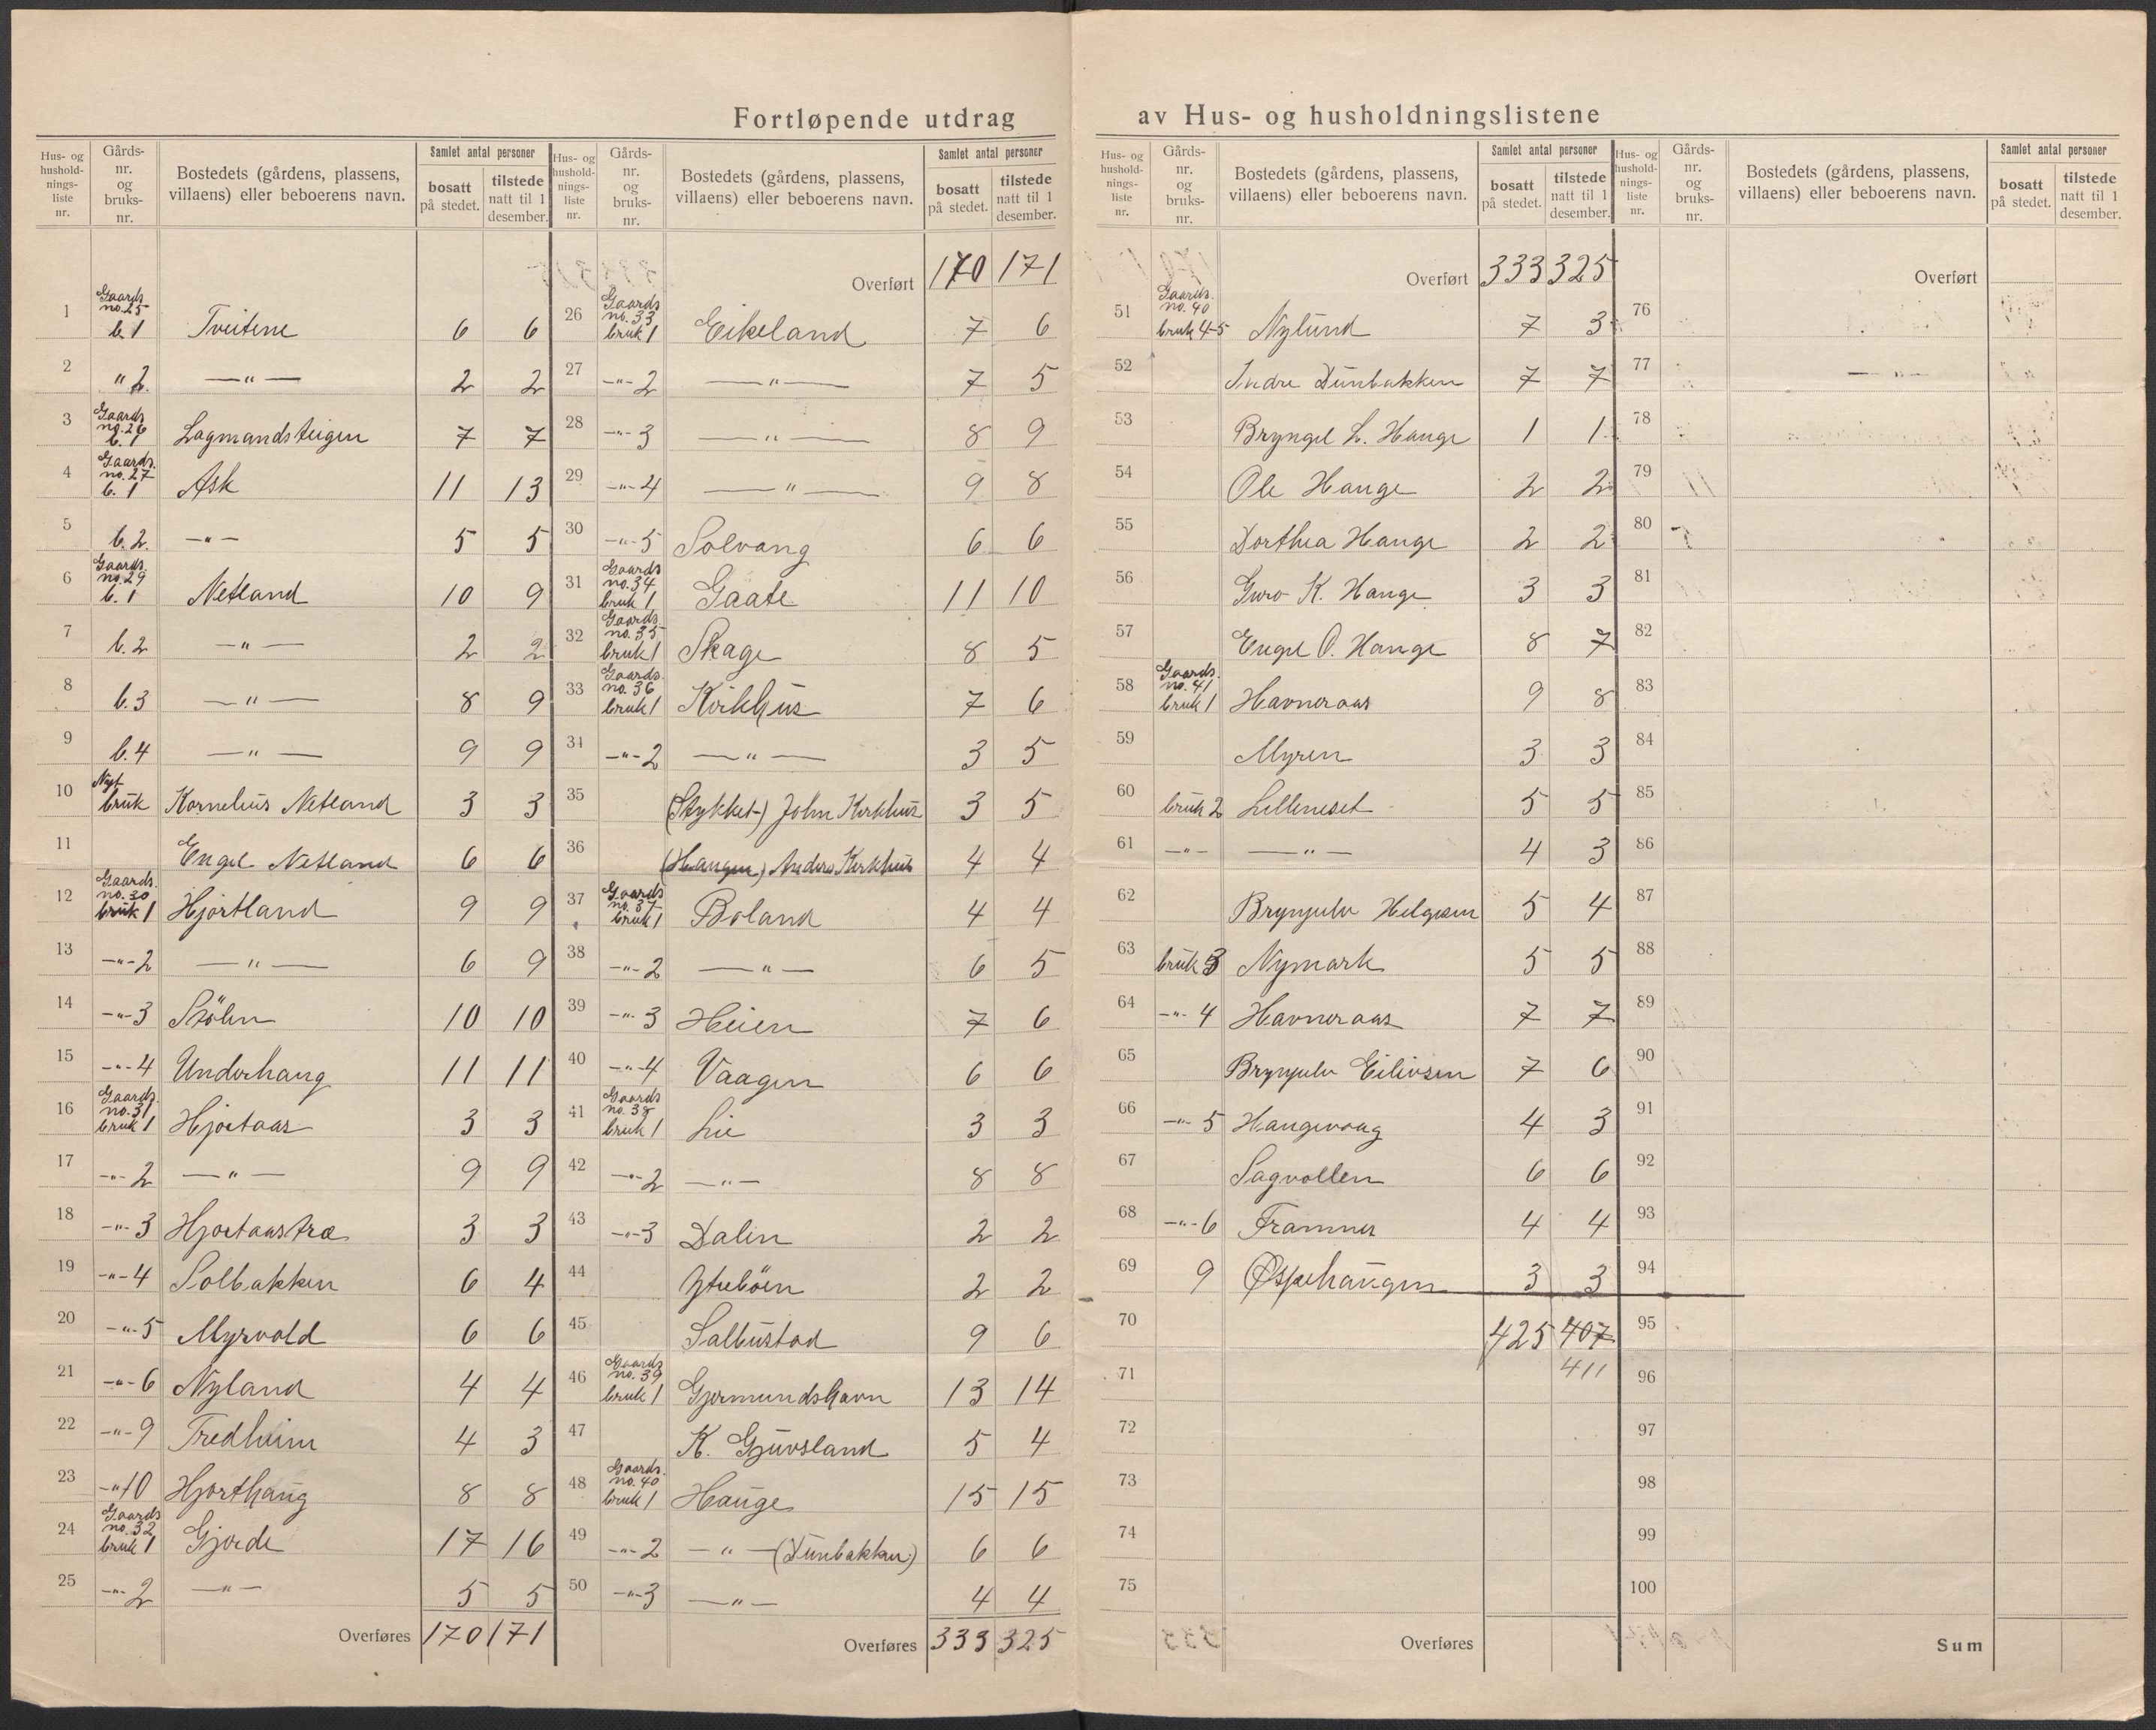 Fortløpende utdrag av Hus- og husholdningslistene
Hus- og husholdnings-liste nr. | Gårds-nr. og bruks-nr. | Bostedets (gårdens, plassens, villaens) eller beboerens navn. | Samlet antal personer | bosatt på stedet. | tilstede natt til 1 desember.
1 Gaards no. 25 b. 1 Tveitene 6 6
2 " 2 —"— 2 2
3 Gaards no. 26 b. 1 Lagmandsteigen 7 7
4 Gaards. no. 27 b. 1 Ask 11 13
5 b. 2. —"— 5 5
6 Gaards. no. 29 b. 1 Netland 10 9
7 b. 2 —"— 2 2
8 b. 3 —"— 8 9
9 b. 4 —"— 9 9
10 Nyt bruk Kornelius Netland 3 3
11 Engel Netland 6 6
12 Gaards. no. 30 bruk 1 Hjortland 9 9
13 —"— 2 —"— 6 9
14 —"— 3 Stölen 10 10
15 —"— 4 Underhaug 11 11
16 Gaards. no. 31 bruk 1 Hjortaas 3 3
17 —"— 2 —"— 9 9
18 —"— 3 Hjortaastræ 3 3
19 —"— 4 Solbakken 6 4
20 —"— 5 Myrvold 6 6
21 —"— 6 Nyland 4 4
22 —"— 9 Fredheim 4 3
23 —"— 10 Hjorthaug 8 8
24 Gaards no. 32 bruk 1 Gjerde 17 16
25 —"— 2 —"— 5 5
Overføres 170 171
Hus- og husholdnings-liste nr. | Gårds-nr. og bruks-nr. | Bostedets (gårdens, plassens, villaens) eller beboerens navn. | Samlet antal personer | bosatt på stedet. | tilstede natt til 1 desember.
Overført 170 171
26 Gaards no. 33 bruk 1 Eikeland 7 6
27 —"— 2 —"— 7 5
28 —"— 3 —"— 8 9
29 —"— 4 —"— 9 8
30 —"— 5 Solvang 6 6
31 Gaards no. 34 bruk 1 Gaate 11 10
32 Gaards. no. 35 bruk 1 Skage 8 5
33 Gaards. no. 36 bruk 1 Kirkhus 7 6
34 —"— 2 —"— 3 5
35 (Stykket) John Kirkhus 3 5
36 (Haugen) Anders Kirkhus 4 4
37 Gaards no. 37 bruk 1 Boland 4 4
38 —"— 2 —"— 6 5
39 —"— 3 Heien 7 6
40 —"— 4 Vaagen 6 6
41 Gaards no. 38 bruk 1 Lie 3 3
42 —"— 2 —"— 8 8
43 —"— 3 Dalen 2 2
44 Ytreböen 2 2
45 Salbustad 9 6
46 Gaards no. 39 bruk 1 Gjermundshavn 13 14
47 K. Gjuvsland 5 4
48 Gaards. no. 40 bruk 1 Hauge 15 15
49 —"— 2 —"— (Dunbakken) 6 6
50 —"— 3 —"— 4 4
Overføres 333 325
Hus- og husholdnings-liste nr. | Gårds-nr. og bruks-nr. | Bostedets (gårdens, plassens, villaens) eller beboerens navn. | Samlet antal personer | bosatt på stedet. | tilstede natt til 1 desember.
Overført 333 325
51 Gaards. no. 40 bruk 4-5 Nylund 7 3
52 Indre Dunbakken 7 7
53 Bryngel L. Hauge 1 1
54 Ole Hauge 2 2
55 Dorthea Hauge 2 2
56 Guro K. Hauge 3 3
57 Engel O. Hauge 8 7
58 Gaards. no. 41 bruk 1 Havneraas 9 8
59 Myren 3 3
60 bruk 2 Lilleneset 5 5
61 —"— —"— 4 3
62 Brynjulv Helgesen 5 4
63 bruk 3 Nymark 5 5
64 —"— 4 Havneraas 7 7
65 Brynjulv Eilivsen 7 6
66 —"— 5 Haugevaag 4 3
67 Sagvollen 6 6
68 —"— 6 Framnes 4 4
69 9 Øspehaugen 3 3
70 425 407
71 411
72
73
74
75
Overføres
Hus- og husholdnings-liste nr. | Gårds-nr. og bruks-nr. | Bostedets (gårdens, plassens, villaens) eller beboerens navn. | Samlet antal personer | bosatt på stedet. | tilstede natt til 1 desember.
Overført
76
77
78
79
80
81
82
83
84
85
86
87
88
89
90
91
92
93
94
95
96
97
98
99
100
Sum